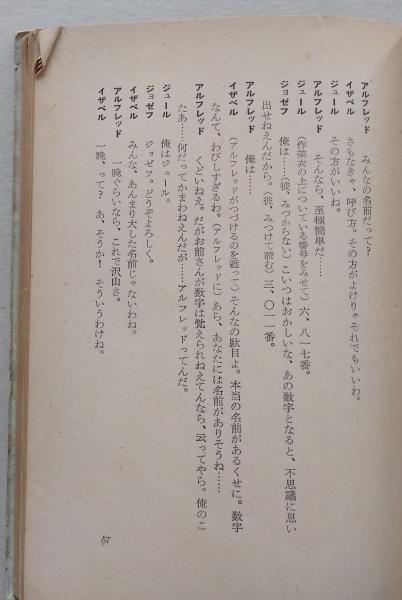 アルフレッド　みんなの名前だって?
イザベル　さもなきゃ、呼び方。その方がよけりゃそれでもいいわ。
ジュール　その方がいいね。
アルフレッド　そんなら、至極簡単だ……
ジュール　(作業衣の上についている番号をみせて)六、八一七番。
ジョゼフ　俺は……(彼、みつからない)こいつはおかしいな、あの数字となると、不思議に思い
出せねえんだから。(彼、みつけて読む)三、〇一一番。
アルフレッド　俺は……
イザベル　(アルフレッドがつづけるのを遮って)そんなの駄目よ。本当の名前があるくせに。数字
なんて、わびしすぎるわ。(アルフレッドに)あら、あなたには名前がありそうね……
アルフレッド　くどいねえ。だがお前さんが数字は覚えられねえてんなら、云ってやら。俺のこ
たあ……何だってかまわねえんだが……アルフレッドってんだ。
ジュール　俺はジュール。
ジョゼフ　ジョゼフ。どうぞよろしく。
イザベル　みんな、あんまり大した名前じゃないわね。
アルフレッド　一晩ぐらいなら、これで沢山さ。
イザベル　一晩、って?　あ、そうか!　そういうわけね。
57